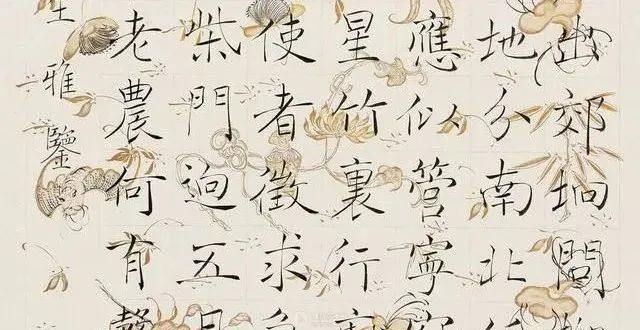 出郊坰問
地分南北
應似管寧
星竹裏行
使者徵求
柴門迥五月
老農何有
生雅鑒